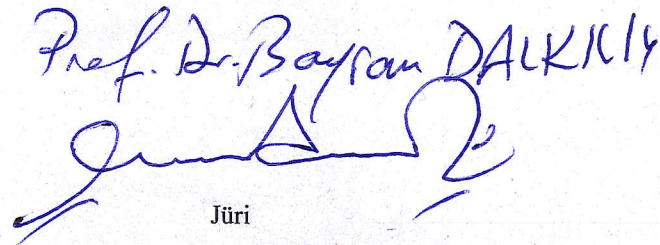 Prof. Dr. Bayram DALKILIÇ
Jüri